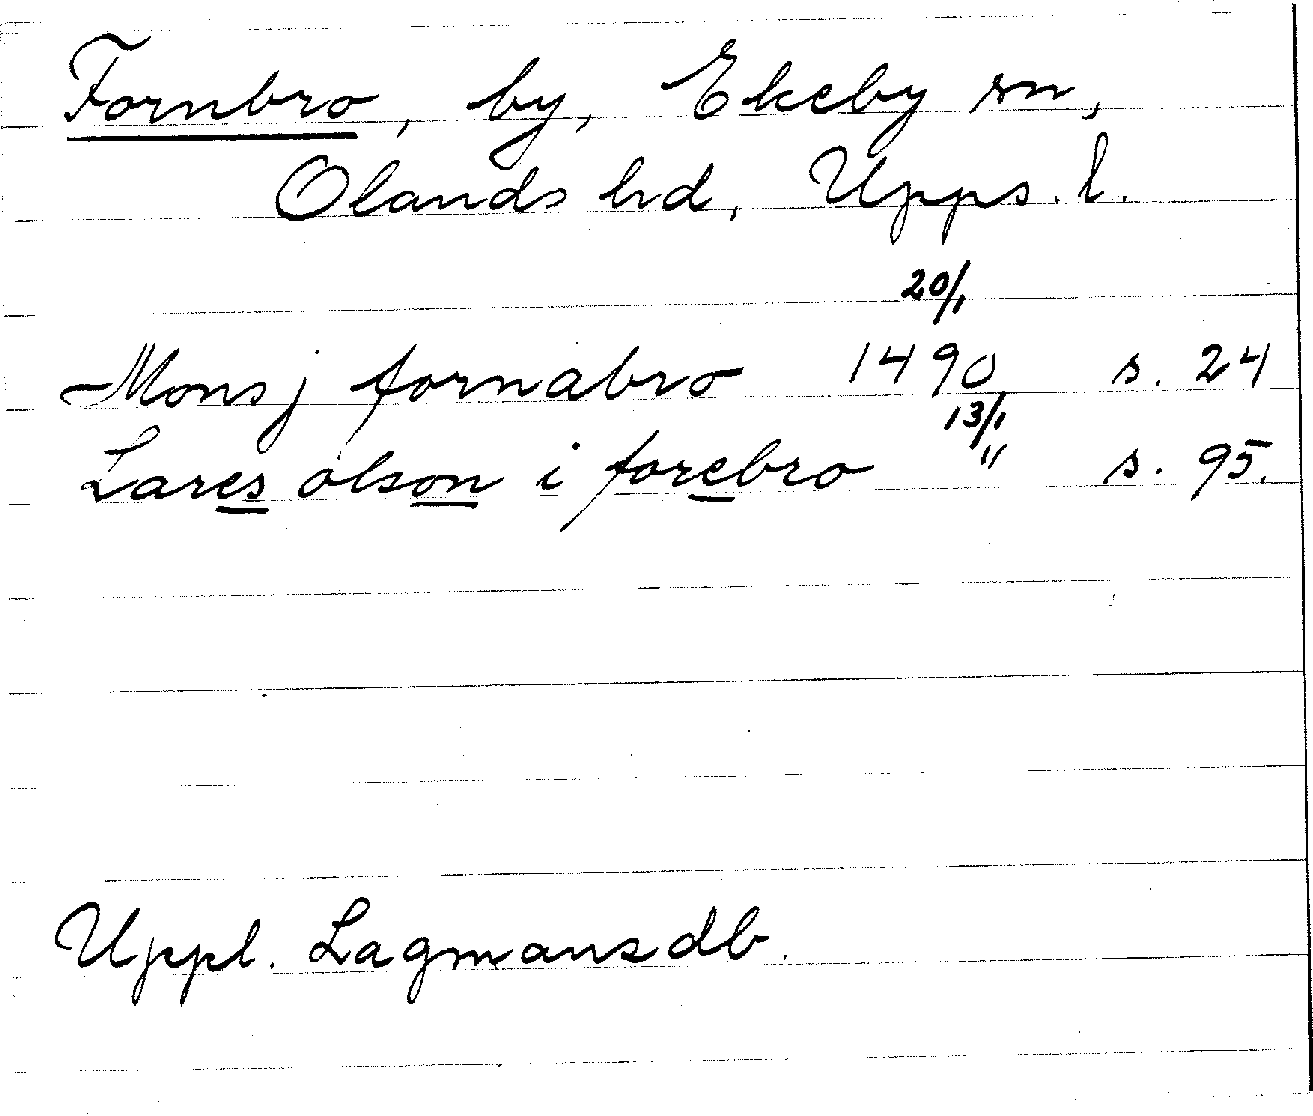 Fornbro, by, Ekeby sn,
Olands hd, Upps. l.
20/1
Mons j fornabro 1490 s. 24
13/1
Lares olson i forebro " s. 95.
Uppl. Lagmansdb.